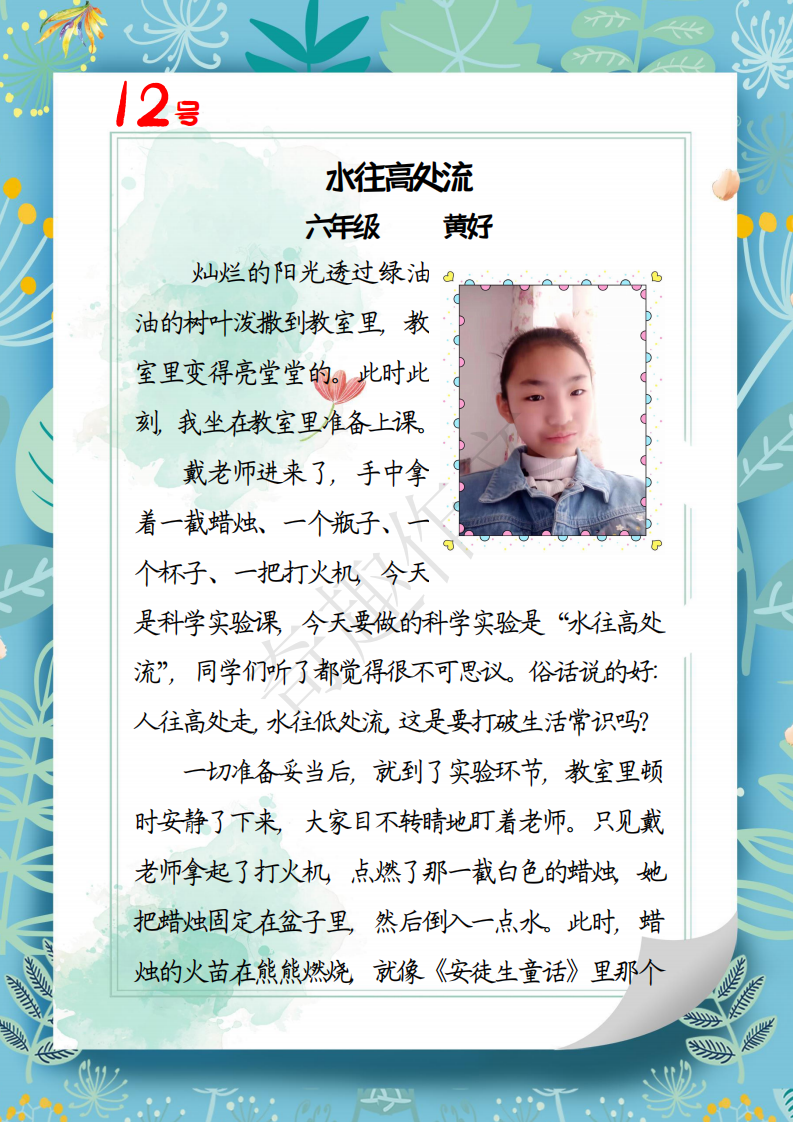 12号
水往高处流
六年级 黄好
灿烂的阳光透过绿油
油的树叶泼撒到教室里，教
室里变得亮堂堂的。此时此
刻，我坐在教室里准备上课。
戴老师进来了，手中拿
着一截蜡烛、一个瓶子、一
个杯子、一把打火机，今天
是科学实验课，今天要做的科学实验是“水往高处
流”，同学们听了都觉得很不可思议。俗话说的好：
人往高处走，水往低处流，这是要打破生活常识吗？
一切准备妥当后，就到了实验环节，教室里顿
时安静了下来，大家目不转睛地盯着老师。只见戴
老师拿起了打火机，点燃了那一截白色的蜡烛，她
把蜡烛固定在盆子里，然后倒入一点水。此时，蜡
烛的火苗在熊熊燃烧，就像《安徒生童话》里那个
奇趣作文